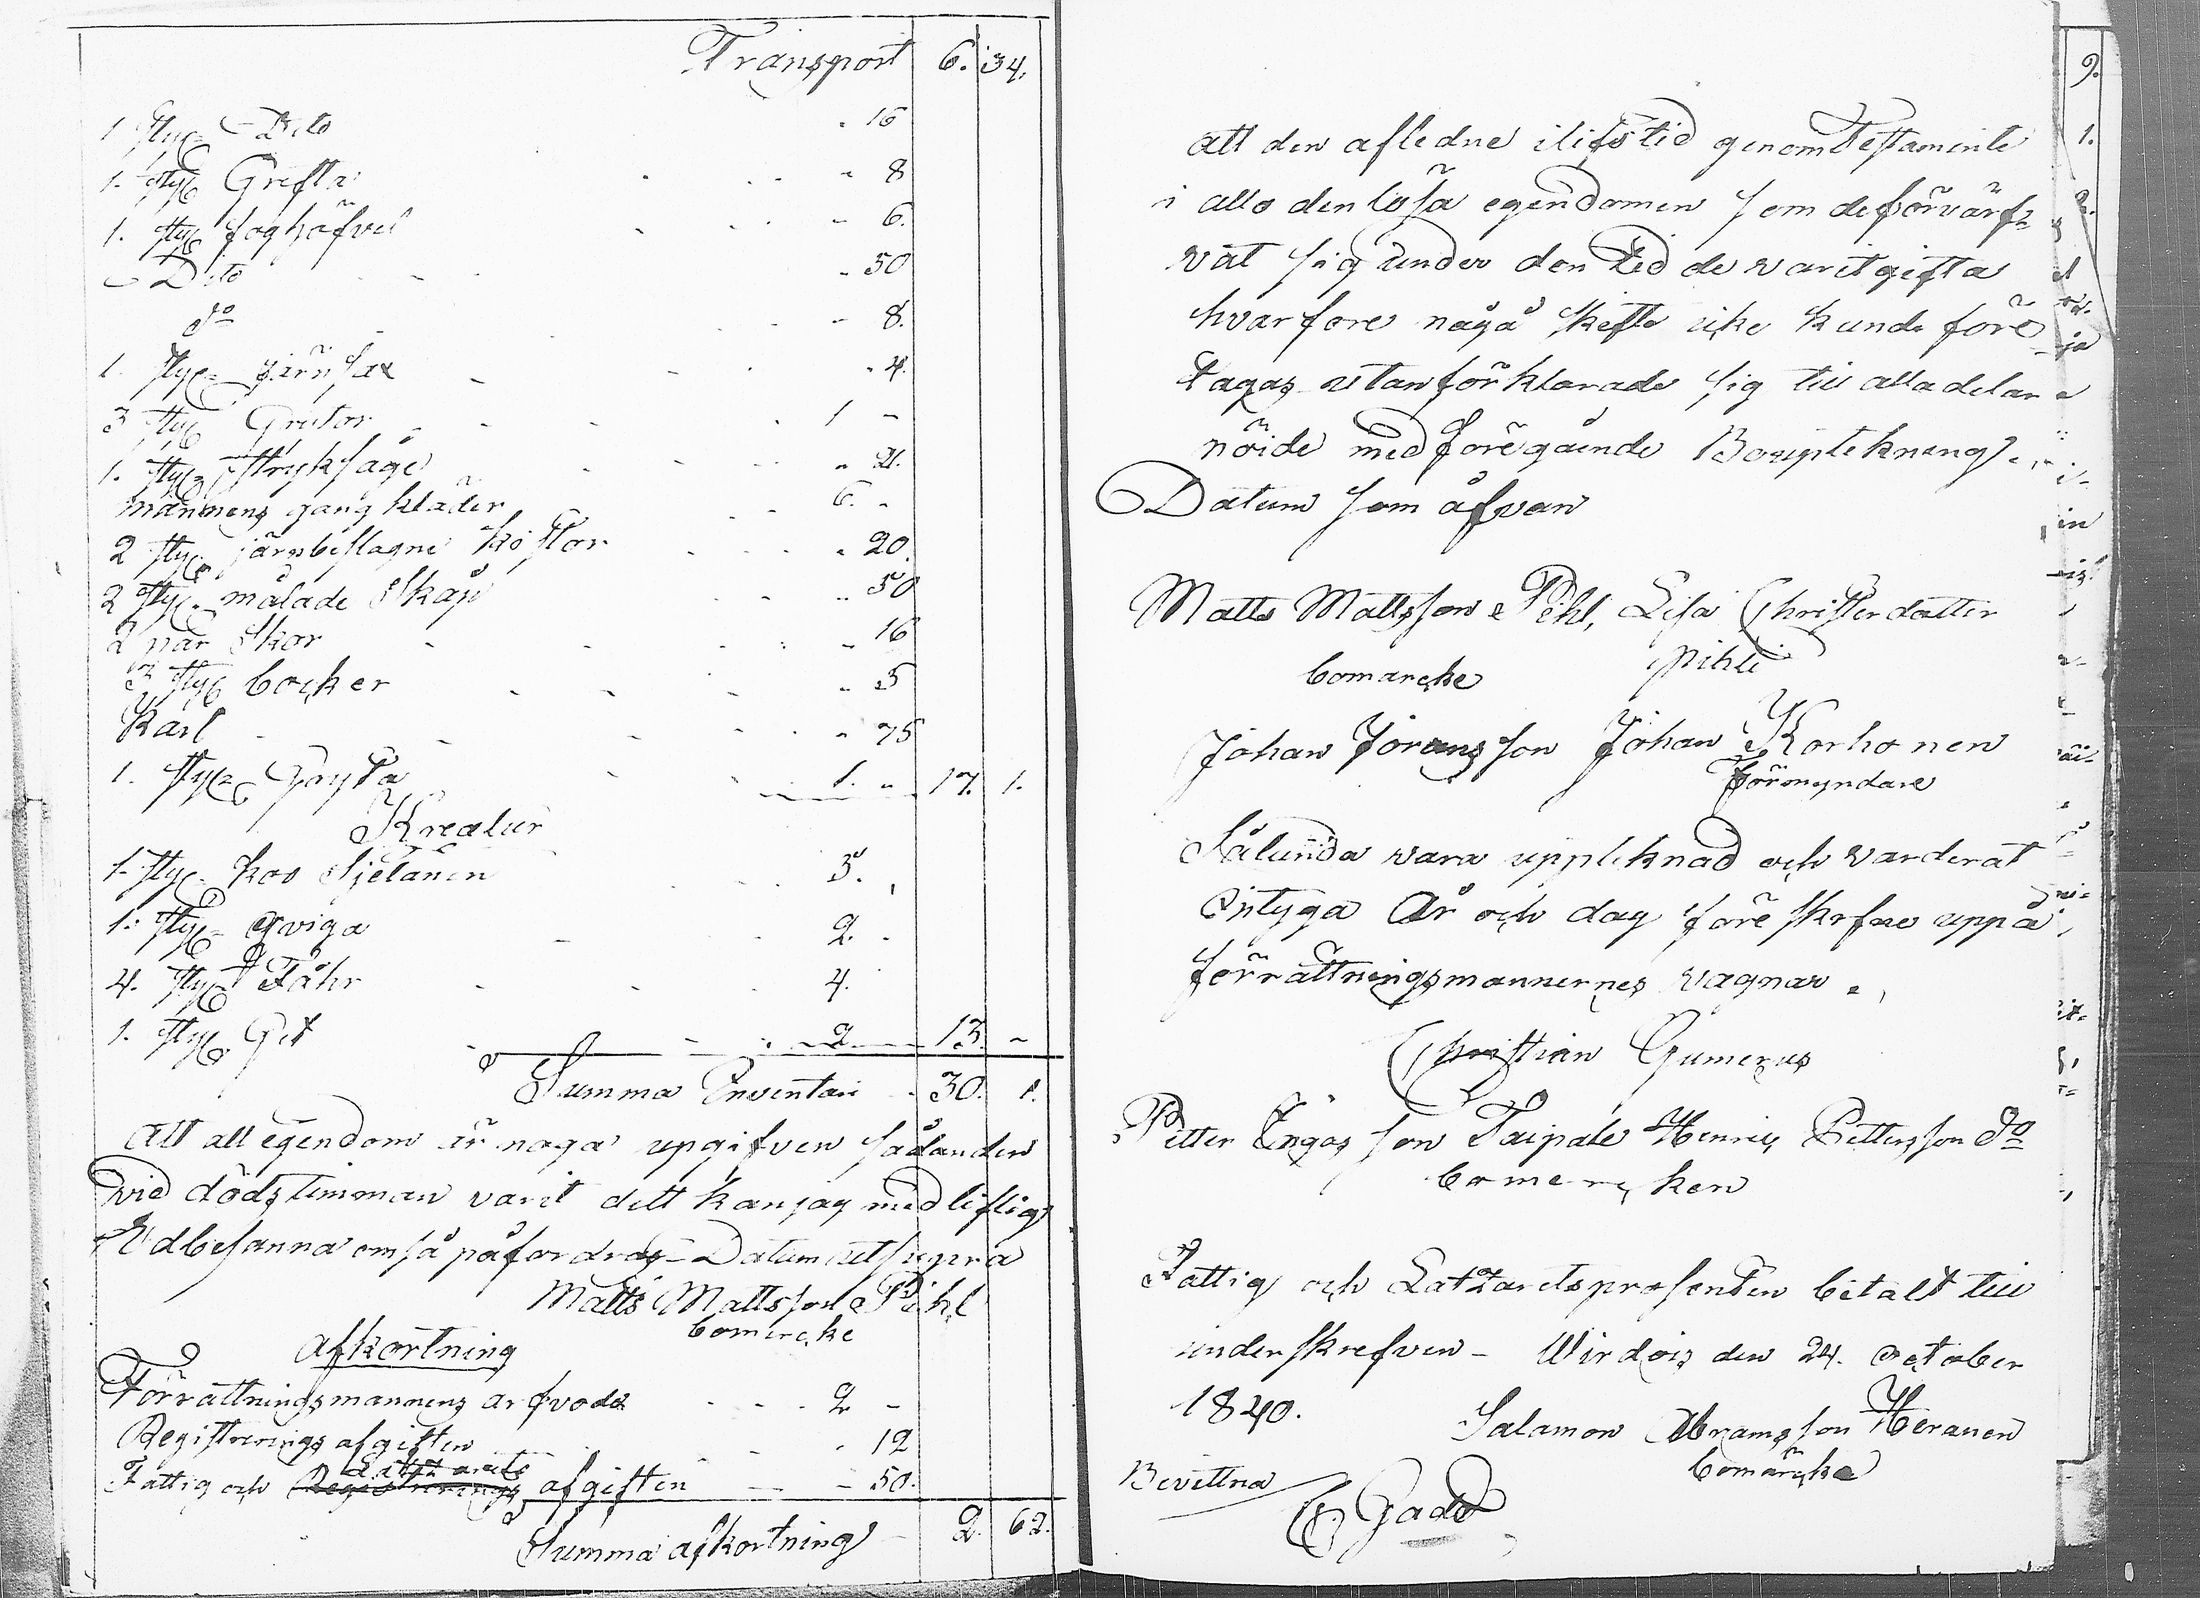 Transport 6. 34.
1 styc= Dito - 16
1. styc Grefta - 8
1. styc foghöfvel - 6.
Dito - 50
do - 8.
1. styc= järnsax - 4.
3 styc Grutor 1 -
1. styc= Stryksåge - 21.
mannens gang kläder 6. -
2 styc. järnbeslagne kistor - 20.
2 styc. målade Skåp - 50
2 par Skor - 16
3 styc bocker - 5
Karl - 75
1. styc= Gryta 1. - 17. 1.
Kreatur
1. styc. koo Sjelänen 3. ,
1. styc= qviga 2. -
4. styc Fåhr 4.
1. styc. Get 2 13. -
Summa Inventari - 30. 1.
Att all egendom är noga upgifven sådan den
vid dödstimman varit dett kan jag med liflig
Ed besanna om så påfordras - Datum ut supra
Matts Mattsson Pihl
bomercke
Afkortning
Förrättningsmannens arfvode 2 -
Registrerings afgiften - 12
Fattig och Latzarets afgiften - 50.
Summa afkortning - 2. 62.
9.
1.
att den afledne i lifstid genom Testamente
i allo den lösa egendomen som de förvärf=
vat sig under den Tid de varit gifta
hvarfore någå skifte icke kunde före
tagas utan förklarade sig till alla delar
nöide med föregående Bouptekning.
Datum som åfvan
Matts Mattsson Pihl, Lisa Christerdotter
bomarcke Pihli
Johan Joransson Johan Korhonen
förmyndare
Sålunda vara uppteknad och varderat
intyga År och dag före skrfne uppå
förrättningsmannernes vagnar.,
Christian Gumerus
Petter Engas son Taipale Henric Pettersson do
bomercken
Fattig och Latzaretsprosenten betalt till
underskrefven - Wirdois den 24. october
1840.
Salamon Abramsson Heranen
bomärcke
Bevittna
E Gadd